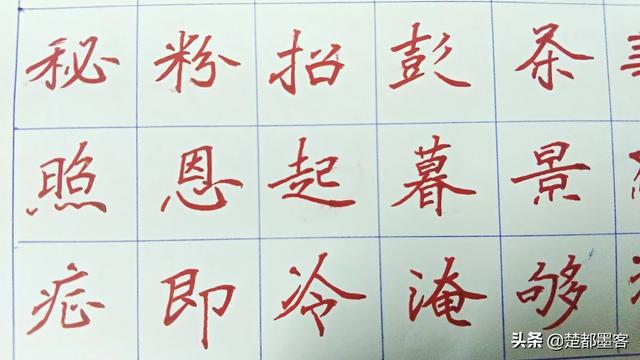 秘粉招彭茶
照恩起暮景
症即冷淹够
头条 @楚都墨客